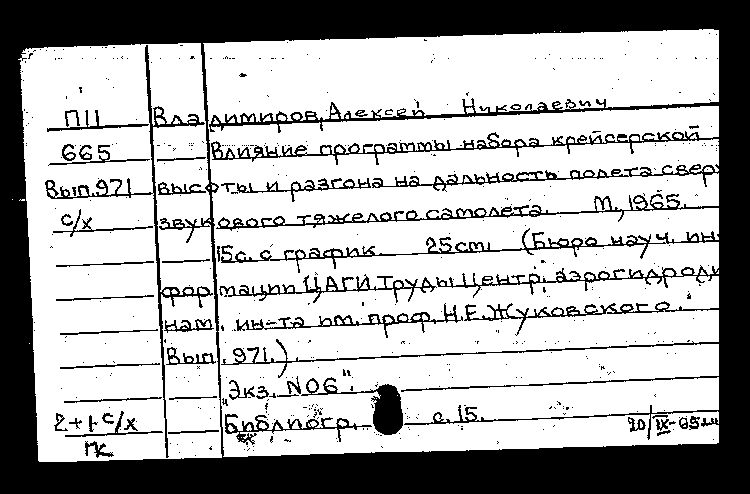 П11 Владимиров, Алексей Николаевич
665 Влияние программы набора крейсерской
Вып.971 высоты и разгона на дальность полета сверх
с/х звукового тяжелого самолета. М., 1965.
15с. с график. 25см. (Бюро науч. ин-
формации ЦАГИ. Труды Центр. аэрогидроди
нам. ин-та им. проф. Н.Е. Жуковского.
Вып. 971.).
„Экз. №06".
2+1-с/х Библиогр. с. 15.
ГК 20/IX-65